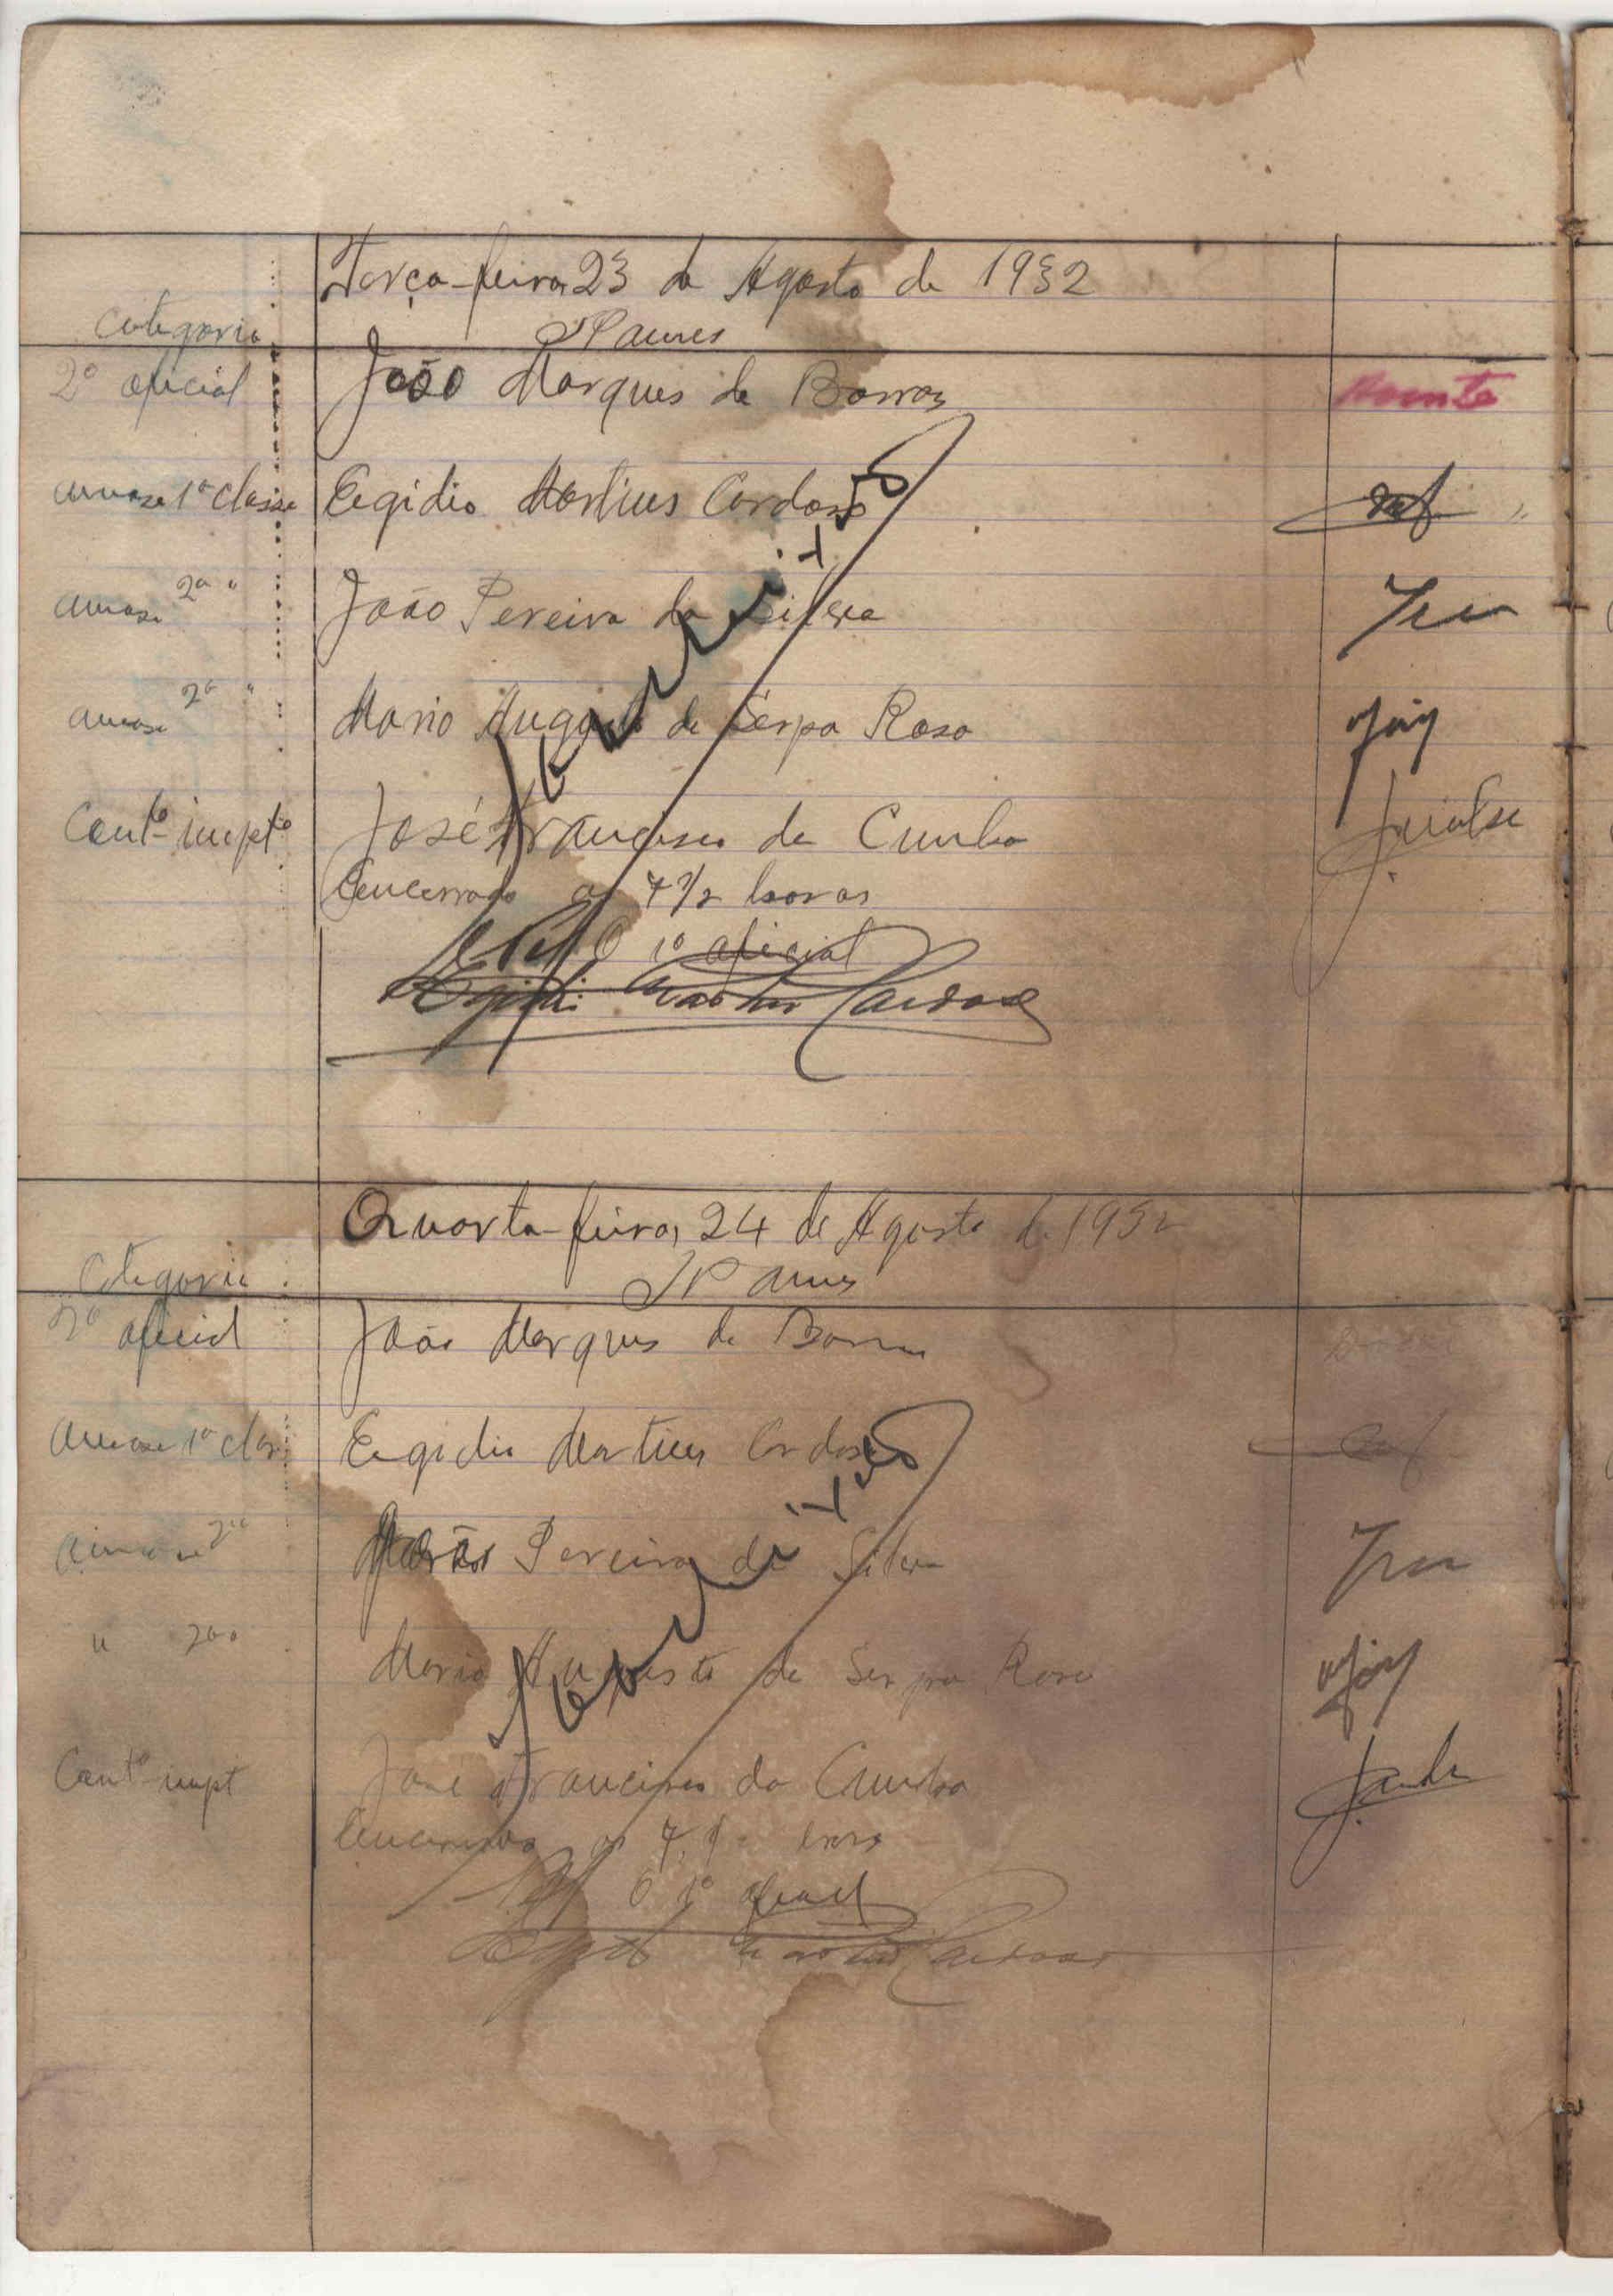 Terça-feira, 23 de Agosto de 1932
Categoria Nomes
2º oficial João Marques de Barros Doente
1ª classe Egidio Martins Cardoso
2ª " João Pereira da Silva
2ª " Mario Augusto de Serpa Rosa
Contº impto José Francisco da Cunha
Encerrado as 7 1/2 horas
O 1º oficial
Egidio Martins Cardoso
Quarta-feira, 24 de Agosto de 1932
Categoria Nomes
2º oficial João Marques de Barros
1ª clas. Egidio Martins Cardoso
2ª João Pereira da Silva
" 2ª " Mario Augusto de Serpa Rosa
Contº impt José Francisco da Cunha
Encerrado as 7 horas
O 1º oficial
Egidio Martins Cardoso